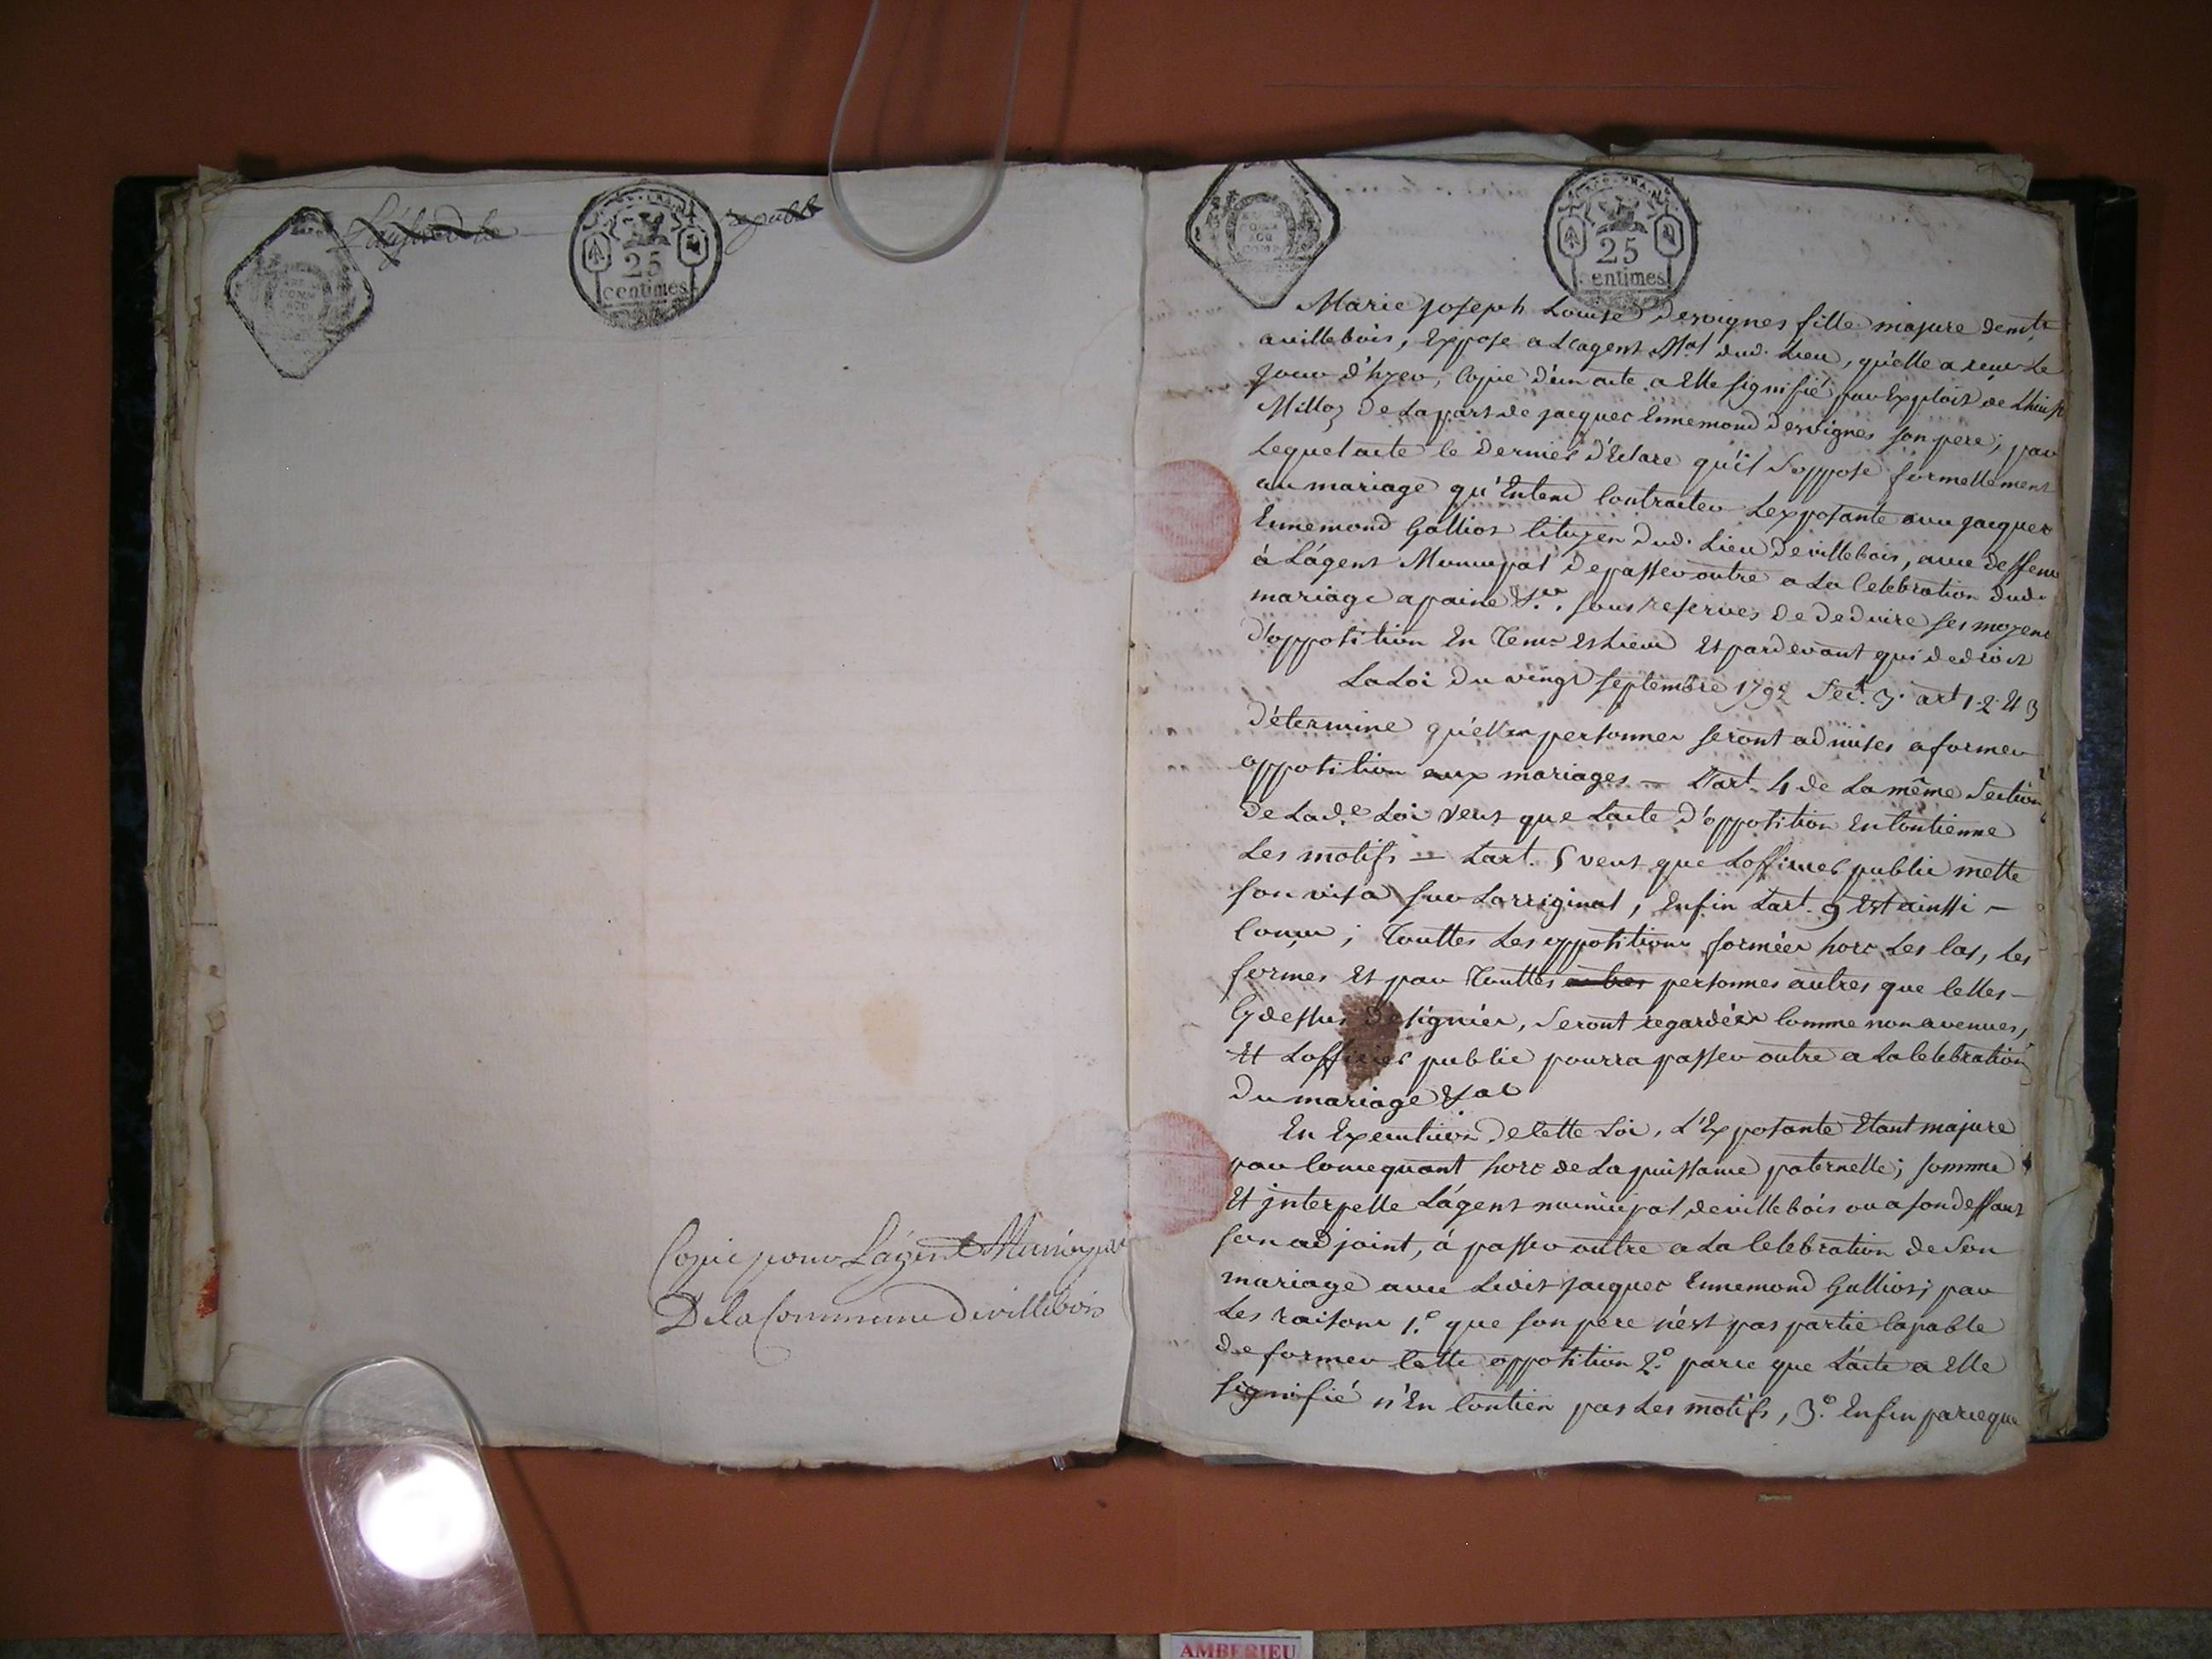 republ
25
centimes
Copie pour L'agent Municipal
De la Commune de villebois
25
centimes
Marie joseph Louise Desvignes fille majure demte
a villebois, Expose a L'agent Mal dud. Lieu, quelle a reçu Le
jour d'hyer, Copie d'un acte a Elle signifié par Exploit de Lhuiss
Millos De La part de jacques Ennemond Desvignes son pere; par
Lequel acte le dernier d'Eclare qu'il S'oppose formellement
au mariage qu'Entend Contracter L'exposante avec jacques
Ennemond Galliot Citoyen dud. Lieu De villebois, avec deffence
à L'agent Municipal De passer outre a La Celebration dud.
mariage a paine &.a. sous reserves de Deduire ses moyens
d'opposition En Tems Et Lieu Et pardevant qui de droit
La Loi Du vingt septembre 1792 Sect. 3. art 1. 2. Et 3
détermine quelles personnes seront admises a former
opposition aux mariages – L'art. 4 de La même Section
De Lad.e Loi veut que L'acte d'opposition En Contienne
Les motifs – L'art. 5 veut que L'officier public mette
son visa sur L'orriginal, Enfin L'art. 9 Est ainssi –
Conçu; Touttes Les oppositions formées hors Les Cas, Les
formes Et par Touttes personnes autres que Celles –
Cy dessus designées, Seront regardées Comme non avenues,
Et L'officier public pourra passer outre a La Celebration
Du mariage &
En Execution De Cette Loi, L'Exposante Etant majure
par Consequant hors de La puissance paternelle; somme
Et jnterpelle L'agent municipal de villebois ou a son deffaut
son adjoint, à passer outre a La Celebration de Son
mariage avec Ledit jacques Ennemond Galliot; par
Les raisons 1.° que son pere n'est pas partie Capable
De former Cette opposition 2.° parce que L'acte a Elle
signifié n'En Contien pas Les motifs, 3.° Enfin parceque
AMBERIEU